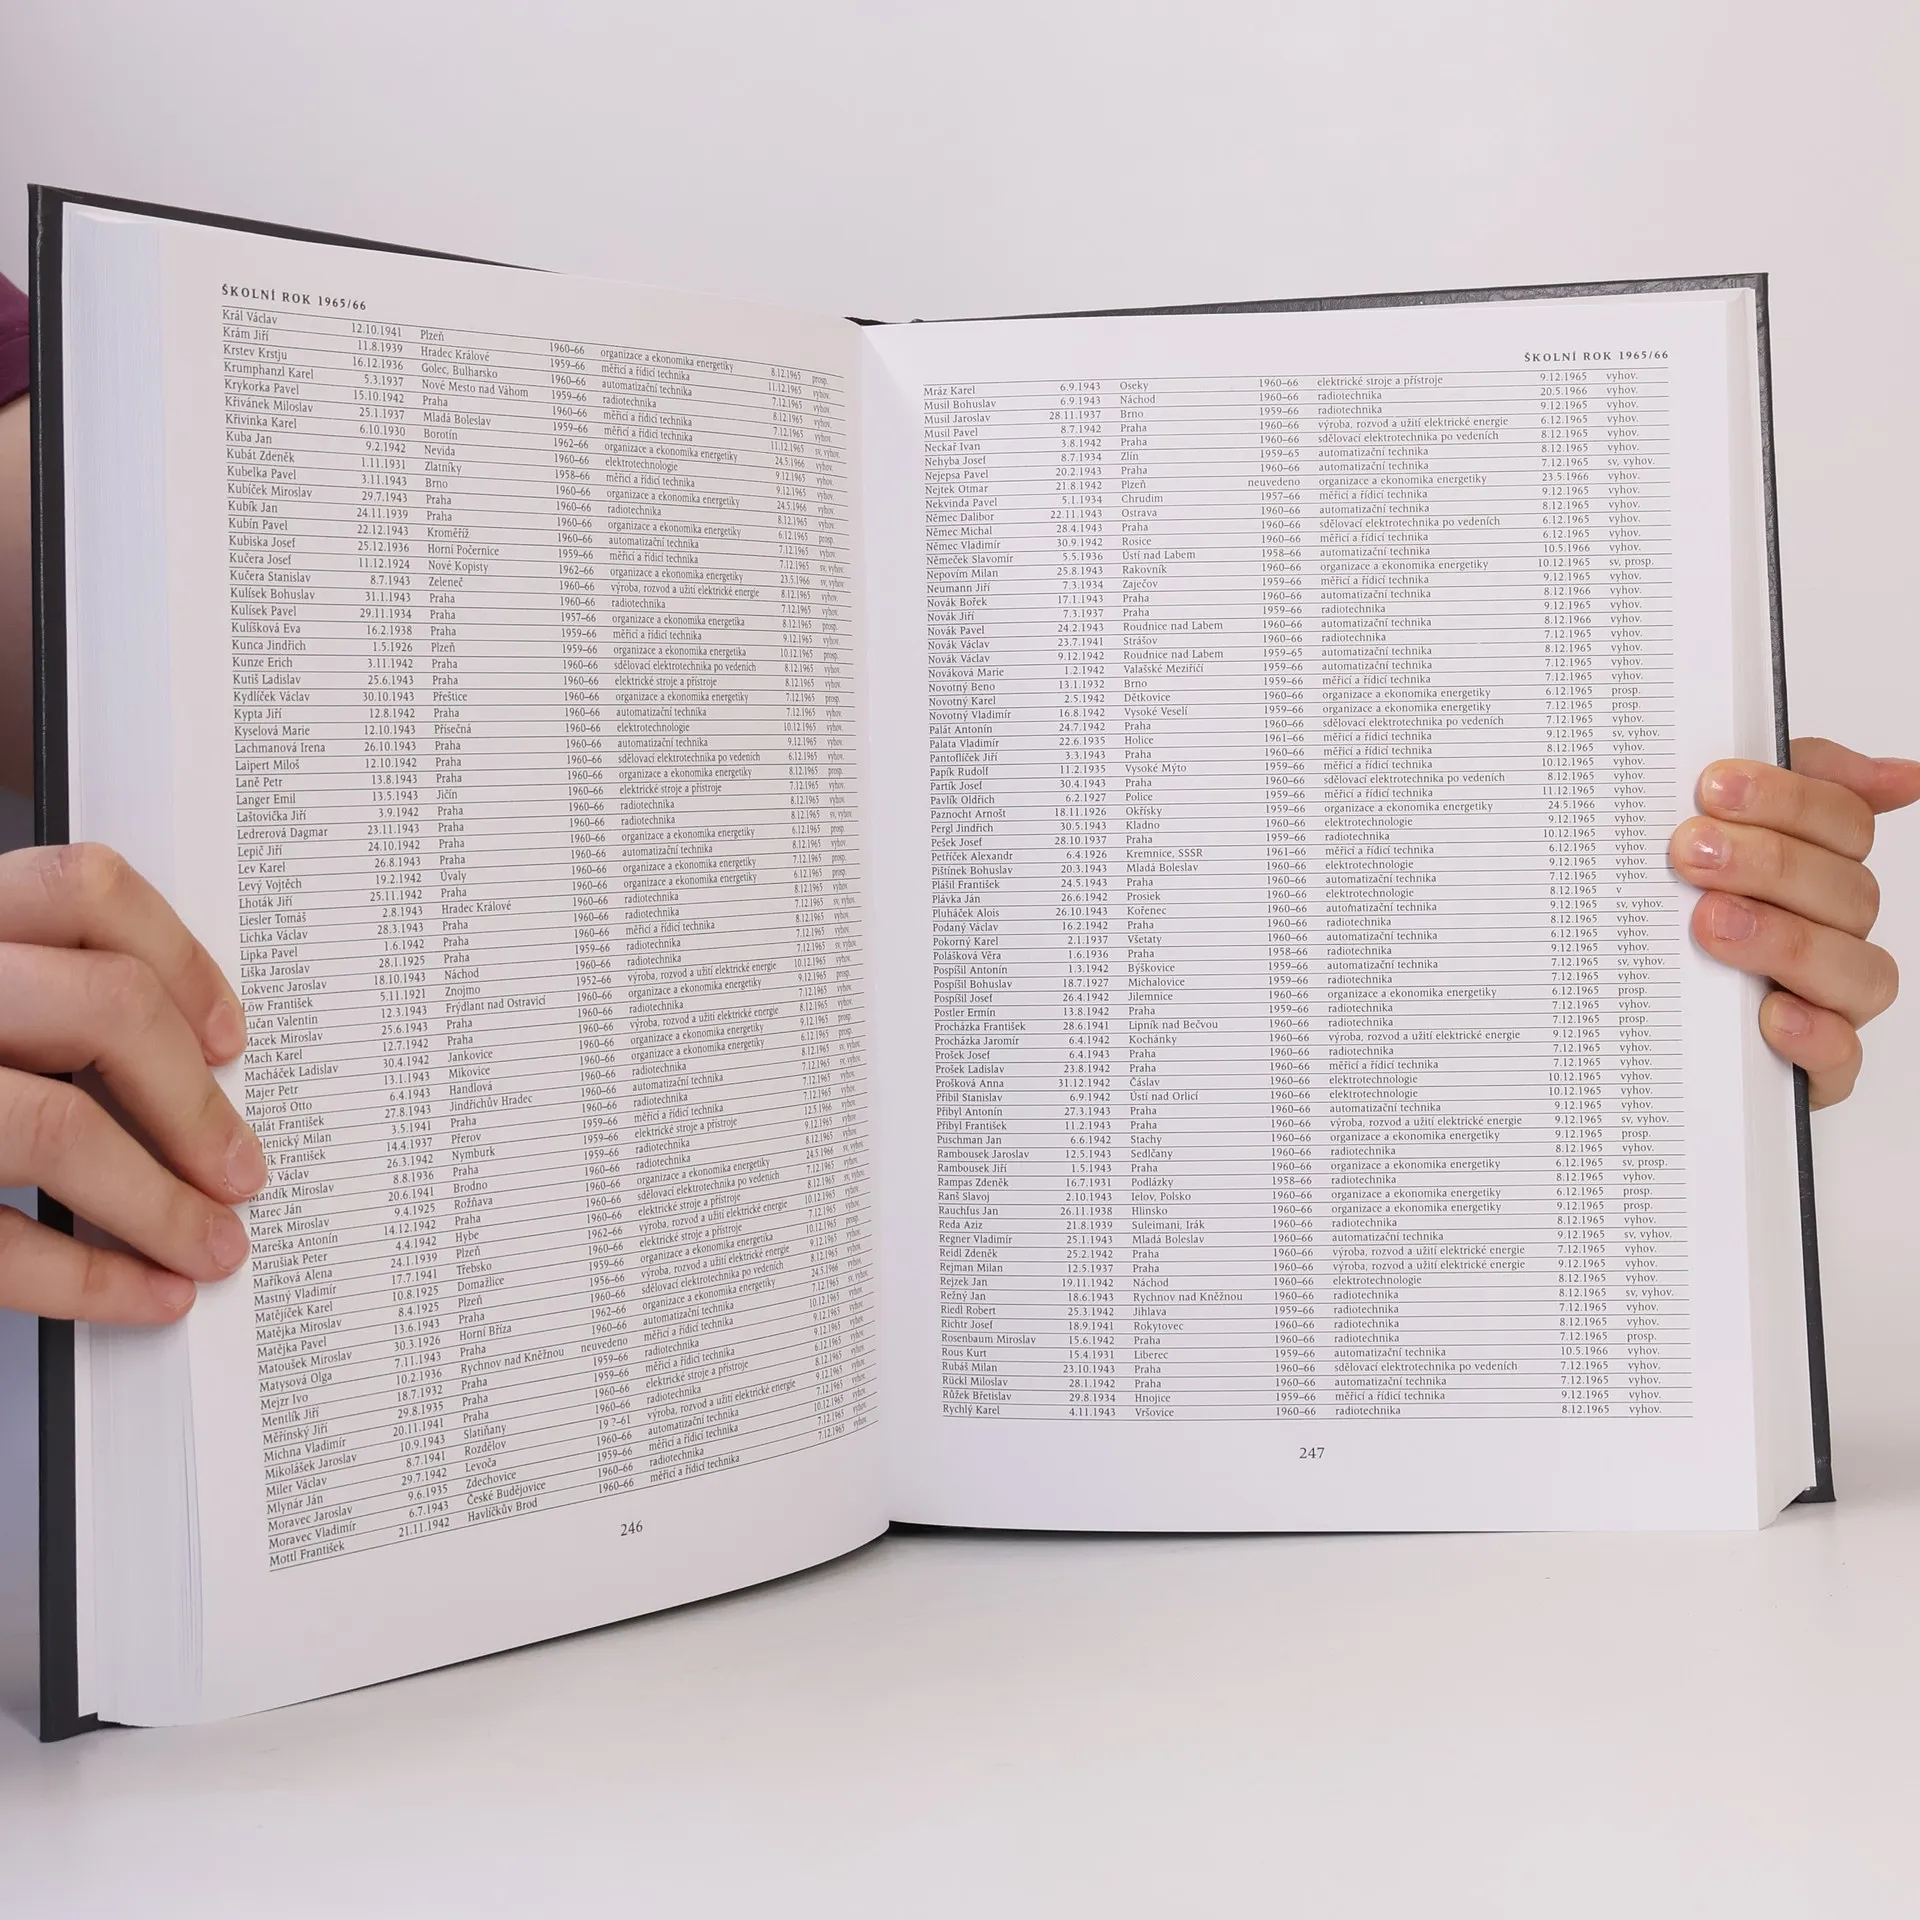 ŠKOLNÍ ROK 1965/66
Král Václav 12.10.1941 Plzeň 1960–66 organizace a ekonomika energetiky 8.12.1965 prosp.
Krám Jiří 11.8.1939 Hradec Králové 1959–66 měřicí a řídicí technika 11.12.1965 vyhov.
Krstev Krstju 16.12.1936 Golec, Bulharsko 1960–66 automatizační technika 7.12.1965 vyhov.
Krumphanzl Karel 5.3.1937 Nové Mesto nad Váhom 1959–66 radiotechnika 8.12.1965 vyhov.
Krykorka Pavel 15.10.1942 Praha 1960–66 měřicí a řídicí technika 7.12.1965 vyhov.
Křivánek Miloslav 25.1.1937 Mladá Boleslav 1959–66 měřicí a řídicí technika 11.12.1965 sv, vyhov.
Křivinka Karel 6.10.1930 Borotín 1962–66 organizace a ekonomika energetiky 24.5.1966 vyhov.
Kuba Jan 9.2.1942 Nevida 1960–66 elektrotechnologie 9.12.1965 vyhov.
Kubát Zdeněk 1.11.1931 Zlatníky 1958–66 měřicí a řídicí technika 9.12.1965 vyhov.
Kubelka Pavel 3.11.1943 Brno 1960–66 organizace a ekonomika energetiky 24.5.1966 vyhov.
Kubíček Miroslav 29.7.1943 Praha 1960–66 radiotechnika 8.12.1965 vyhov.
Kubík Jan 24.11.1939 Praha 1960–66 organizace a ekonomika energetiky 6.12.1965 prosp.
Kubín Pavel 22.12.1943 Kroměříž 1960–66 automatizační technika 7.12.1965 vyhov.
Kubiska Josef 25.12.1936 Horní Počernice 1959–66 měřicí a řídicí technika 7.12.1965 sv, vyhov.
Kučera Josef 11.12.1924 Nové Kopisty 1962–66 organizace a ekonomika energetiky 23.5.1966 sv, vyhov.
Kučera Stanislav 8.7.1943 Zeleneč 1960–66 výroba, rozvod a užití elektrické energie 8.12.1965 vyhov.
Kulísek Bohuslav 31.1.1943 Praha 1960–66 radiotechnika 7.12.1965 vyhov.
Kulísek Pavel 29.11.1934 Praha 1957–66 organizace a ekonomika energetika 8.12.1965 prosp.
Kulíšková Eva 16.2.1938 Praha 1959–66 měřicí a řídicí technika 9.12.1965 vyhov.
Kunca Jindřich 1.5.1926 Plzeň 1959–66 organizace a ekonomika energetiky 10.12.1965 prosp.
Kunze Erich 3.11.1942 Praha 1960–66 sdělovací elektrotechnika po vedeních 8.12.1965 vyhov.
Kutiš Ladislav 25.6.1943 Praha 1960–66 elektrické stroje a přístroje 8.12.1965 vyhov.
Kydlíček Václav 30.10.1943 Přeštice 1960–66 organizace a ekonomika energetiky 7.12.1965 prosp.
Kypta Jiří 12.8.1942 Praha 1960–66 automatizační technika 7.12.1965 vyhov.
Kyselová Marie 12.10.1943 Přísečná 1960–66 elektrotechnologie 10.12.1965 vyhov.
Lachmanová Irena 26.10.1943 Praha 1960–66 automatizační technika 9.12.1965 vyhov.
Laipert Miloš 12.10.1942 Praha 1960–66 sdělovací elektrotechnika po vedeních 6.12.1965 vyhov.
Laně Petr 13.8.1943 Praha 1960–66 organizace a ekonomika energetiky 8.12.1965 prosp.
Langer Emil 13.5.1943 Jičín 1960–66 elektrické stroje a přístroje 7.12.1965 vyhov.
Laštovička Jiří 3.9.1942 Praha 1960–66 radiotechnika 8.12.1965 vyhov.
Ledrerová Dagmar 23.11.1943 Praha 1960–66 radiotechnika 8.12.1965 sv, vyhov.
Lepič Jiří 24.10.1942 Praha 1960–66 organizace a ekonomika energetiky 6.12.1965 prosp.
Lev Karel 26.8.1943 Praha 1960–66 automatizační technika 8.12.1965 vyhov.
Levý Vojtěch 19.2.1942 Úvaly 1960–66 organizace a ekonomika energetiky 7.12.1965 prosp.
Lhoták Jiří 25.11.1942 Praha 1960–66 organizace a ekonomika energetiky 6.12.1965 prosp.
Liesler Tomáš 2.8.1943 Hradec Králové 1960–66 radiotechnika 8.12.1965 vyhov.
Lichka Václav 28.3.1943 Praha 1960–66 radiotechnika 7.12.1965 sv, vyhov.
Lipka Pavel 1.6.1942 Praha 1960–66 měřicí a řídicí technika 8.12.1965 vyhov.
Liška Jaroslav 28.1.1925 Praha 1959–66 radiotechnika 7.12.1965 vyhov.
Lokvenc Jaroslav 18.10.1943 Náchod 1960–66 radiotechnika 7.12.1965 sv, vyhov.
Löw František 5.11.1921 Znojmo 1952–66 výroba, rozvod a užití elektrické energie 10.12.1965 vyhov.
Lučan Valentin 12.3.1943 Frýdlant nad Ostravicí 1960–66 organizace a ekonomika energetiky 9.12.1965 prosp.
Macek Miroslav 25.6.1943 Praha 1960–66 radiotechnika 7.12.1965 vyhov.
Mach Karel 12.7.1942 Praha 1960–66 výroba, rozvod a užití elektrické energie 8.12.1965 vyhov.
Macháček Ladislav 30.4.1942 Jankovice 1960–66 organizace a ekonomika energetiky 9.12.1965 prosp.
Majer Petr 13.1.1943 Mikovice 1960–66 organizace a ekonomika energetiky 6.12.1965 prosp.
Majoroš Otto 6.4.1943 Handlová 1960–66 radiotechnika 8.12.1965 sv, vyhov.
Malát František 27.8.1943 Jindřichův Hradec 1960–66 automatizační technika
Milan 3.5.1941 Praha 1960–66 radiotechnika
František 14.4.1937 Přerov 1959–66 měřicí a řídicí technika
Václav 26.3.1942 Nymburk elektrické stroje a přístroje
Mandík Miroslav 8.8.1936 Praha 1959–66 radiotechnika
Marec Ján 20.6.1941 Brodno 1960–66 radiotechnika
Marek Miroslav 9.4.1925 Rožňava organizace a ekonomika energetiky
Mareška Antonín 14.12.1942 Praha 1960–66 sdělovací elektrotechnika po vedeních
Marušiak Peter 4.4.1942 Hybe 1960–66 elektrické stroje a přístroje
Maříková Alena 24.1.1939 Plzeň 1962–66 výroba, rozvod a užití elektrické energie
Mastný Vladimír 17.7.1941 Třebsko 1960–66 elektrické stroje a přístroje
Matějíček Karel 10.8.1925 Domažlice 1959–66 organizace a ekonomika energetika
Matějka Miroslav 8.4.1925 Plzeň 1956–66 výroba, rozvod a užití elektrické energie
Matějka Pavel 13.6.1943 Praha 1960–66 sdělovací elektrotechnika po vedeních
Matoušek Miroslav 30.3.1926 Horní Bříza 1962–66 organizace a ekonomika energetiky
Matysová Olga 7.11.1943 Praha 1960–66 automatizační technika
Mejzr Ivo 10.2.1936 Rychnov nad Kněžnou neuvedeno měřicí a řídicí technika
Mentlík Jiří 18.7.1932 Praha 1959–66 radiotechnika
Měřínský Jiří 29.8.1935 Praha 1959–66 měřicí a řídicí technika
Michna Vladimír 20.11.1941 Praha 1960–66 elektrické stroje a přístroje
Mikolášek Jaroslav 10.9.1943 Slatiňany 1960–66 radiotechnika
Miler Václav 8.7.1941 Rozdělov 19 ?–61 výroba, rozvod a užití elektrické energie
Mlynár Ján 29.7.1942 Levoča 1960–66 automatizační technika
Moravec Jaroslav 9.6.1935 Zdechovice 1959–66 měřicí a řídicí technika
Moravec Vladimír 6.7.1943 České Budějovice 1960–66 radiotechnika 10.12.1965 vyhov.
Mottl František 21.11.1942 Havlíčkův Brod 1960–66 měřicí a řídicí technika 7.12.1965 vyhov.
246
ŠKOLNÍ ROK 1965/66
Mráz Karel 6.9.1943 Oseky 1960–66 elektrické stroje a přístroje 9.12.1965 vyhov.
Musil Bohuslav 6.9.1943 Náchod 1960–66 radiotechnika 20.5.1966 vyhov.
Musil Jaroslav 28.11.1937 Brno 1959–66 radiotechnika 9.12.1965 vyhov.
Musil Pavel 8.7.1942 Praha 1960–66 výroba, rozvod a užití elektrické energie 6.12.1965 vyhov.
Neckař Ivan 3.8.1942 Praha 1960–66 sdělovací elektrotechnika po vedeních 8.12.1965 vyhov.
Nehyba Josef 8.7.1934 Zlín 1959–65 automatizační technika 8.12.1965 vyhov.
Nejepsa Pavel 20.2.1943 Praha 1960–66 automatizační technika 7.12.1965 sv, vyhov.
Nejtek Otmar 21.8.1942 Plzeň neuvedeno organizace a ekonomika energetiky 23.5.1966 vyhov.
Nekvinda Pavel 5.1.1934 Chrudim 1957–66 měřicí a řídicí technika 9.12.1965 vyhov.
Němec Dalibor 22.11.1943 Ostrava 1960–66 automatizační technika 8.12.1965 vyhov.
Němec Michal 28.4.1943 Praha 1960–66 sdělovací elektrotechnika po vedeních 6.12.1965 vyhov.
Němec Vladimír 30.9.1942 Rosice 1960–66 měřicí a řídicí technika 6.12.1965 vyhov.
Němeček Slavomír 5.5.1936 Ústí nad Labem 1958–66 automatizační technika 10.5.1966 vyhov.
Nepovím Milan 25.8.1943 Rakovník 1960–66 organizace a ekonomika energetiky 10.12.1965 sv, prosp.
Neumann Jiří 7.3.1934 Zaječov 1959–66 měřicí a řídicí technika 9.12.1965 vyhov.
Novák Bořek 17.1.1943 Praha 1960–66 automatizační technika 8.12.1966 vyhov.
Novák Jiří 7.3.1937 Praha 1959–66 radiotechnika 9.12.1965 vyhov.
Novák Pavel 24.2.1943 Roudnice nad Labem 1960–66 automatizační technika 8.12.1966 vyhov.
Novák Václav 23.7.1941 Strášov 1960–66 radiotechnika 7.12.1965 vyhov.
Novák Václav 9.12.1942 Roudnice nad Labem 1959–65 automatizační technika 8.12.1965 vyhov.
Nováková Marie 1.2.1942 Valašské Meziříčí 1959–66 automatizační technika 7.12.1965 vyhov.
Novotný Beno 13.1.1932 Brno 1959–66 měřicí a řídicí technika 8.12.1965 vyhov.
Novotný Karel 2.5.1942 Dětkovice 1960–66 organizace a ekonomika energetiky 6.12.1965 prosp.
Novotný Vladimír 16.8.1942 Vysoké Veselí 1959–66 organizace a ekonomika energetiky 7.12.1965 prosp.
Palát Antonín 24.7.1942 Praha 1960–66 sdělovací elektrotechnika po vedeních 7.12.1965 vyhov.
Palata Vladimír 22.6.1935 Holice 1961–66 měřicí a řídicí technika 9.12.1965 sv, vyhov.
Pantoflíček Jiří 3.3.1943 Praha 1960–66 měřicí a řídicí technika 8.12.1965 vyhov.
Papík Rudolf 11.2.1935 Vysoké Mýto 1959–66 měřicí a řídicí technika 10.12.1965 vyhov.
Partík Josef 30.4.1943 Praha 1960–66 sdělovací elektrotechnika po vedeních 8.12.1965 vyhov.
Pavlík Oldřich 6.2.1927 Police 1959–66 měřicí a řídicí technika 11.12.1965 vyhov.
Paznocht Arnošt 18.11.1926 Okřísky 1959–66 organizace a ekonomika energetiky 24.5.1966 vyhov.
Pergl Jindřich 30.5.1943 Kladno 1960–66 elektrotechnologie 9.12.1965 vyhov.
Pešek Josef 28.10.1937 Praha 1959–66 radiotechnika 10.12.1965 vyhov.
Petříček Alexandr 6.4.1926 Kremnice, SSSR 1961–66 měřicí a řídicí technika 6.12.1965 vyhov.
Pištínek Bohuslav 20.3.1943 Mladá Boleslav 1960–66 elektrotechnologie 9.12.1965 vyhov.
Plášil František 24.5.1943 Praha 1960–66 automatizační technika 7.12.1965 vyhov.
Plávka Ján 26.6.1942 Prosiek 1960–66 elektrotechnologie 8.12.1965 v
Pluháček Alois 26.10.1943 Kořenec 1960–66 automatizační technika 9.12.1965 sv, vyhov.
Podaný Václav 16.2.1942 Praha 1960–66 radiotechnika 8.12.1965 vyhov.
Pokorný Karel 2.1.1937 Všetaty 1960–66 automatizační technika 6.12.1965 vyhov.
Polášková Věra 1.6.1936 Praha 1958–66 radiotechnika 9.12.1965 vyhov.
Pospíšil Antonín 1.3.1942 Býškovice 1959–66 automatizační technika 7.12.1965 sv, vyhov.
Pospíšil Bohuslav 18.7.1927 Michalovice 1959–66 radiotechnika 7.12.1965 vyhov.
Pospíšil Josef 26.4.1942 Jilemnice 1960–66 organizace a ekonomika energetiky 6.12.1965 prosp.
Postler Ermín 13.8.1942 Praha 1959–66 radiotechnika 7.12.1965 vyhov.
Procházka František 28.6.1941 Lipník nad Bečvou 1960–66 radiotechnika 7.12.1965 prosp.
Procházka Jaromír 6.4.1942 Kochánky 1960–66 výroba, rozvod a užití elektrické energie 9.12.1965 vyhov.
Prošek Josef 6.4.1943 Praha 1960–66 radiotechnika 7.12.1965 vyhov.
Prošek Ladislav 23.8.1942 Praha 1960–66 měřicí a řídicí technika 7.12.1965 vyhov.
Prošková Anna 31.12.1942 Čáslav 1960–66 elektrotechnologie 10.12.1965 vyhov.
Přibil Stanislav 6.9.1942 Ústí nad Orlicí 1960–66 elektrotechnologie 10.12.1965 vyhov.
Přibyl Antonín 27.3.1943 Praha 1960–66 automatizační technika 9.12.1965 vyhov.
Přibyl František 11.2.1943 Praha 1960–66 výroba, rozvod a užití elektrické energie 9.12.1965 sv, vyhov.
Puschman Jan 6.6.1942 Stachy 1960–66 organizace a ekonomika energetiky 9.12.1965 prosp.
Rambousek Jaroslav 12.5.1943 Sedlčany 1960–66 radiotechnika 8.12.1965 vyhov.
Rambousek Jiří 1.5.1943 Praha 1960–66 organizace a ekonomika energetiky 6.12.1965 sv, prosp.
Rampas Zdeněk 16.7.1931 Podlázky 1958–66 radiotechnika 8.12.1965 vyhov.
Ranš Slavoj 2.10.1943 Ielov, Polsko 1960–66 organizace a ekonomika energetiky 6.12.1965 prosp.
Rauchfus Jan 26.11.1938 Hlinsko 1960–66 organizace a ekonomika energetiky 9.12.1965 prosp.
Reda Aziz 21.8.1939 Suleimani, Irák 1960–66 radiotechnika 8.12.1965 vyhov.
Regner Vladimír 25.1.1943 Mladá Boleslav 1960–66 automatizační technika 9.12.1965 sv, vyhov.
Reidl Zdeněk 25.2.1942 Praha 1960–66 výroba, rozvod a užití elektrické energie 7.12.1965 vyhov.
Rejman Milan 12.5.1937 Praha 1960–66 výroba, rozvod a užití elektrické energie 9.12.1965 vyhov.
Rejzek Jan 19.11.1942 Náchod 1960–66 elektrotechnologie 8.12.1965 vyhov.
Režný Jan 18.6.1943 Rychnov nad Kněžnou 1960–66 radiotechnika 8.12.1965 sv, vyhov.
Riedl Robert 25.3.1942 Jihlava 1959–66 radiotechnika 7.12.1965 vyhov.
Richtr Josef 18.9.1941 Rokytovec 1960–66 radiotechnika 8.12.1965 vyhov.
Rosenbaum Miroslav 15.6.1942 Praha 1960–66 radiotechnika 7.12.1965 prosp.
Rous Kurt 15.4.1931 Liberec 1959–66 automatizační technika 10.5.1966 vyhov.
Rubáš Milan 23.10.1943 Praha 1960–66 sdělovací elektrotechnika po vedeních 7.12.1965 vyhov.
Rückl Miloslav 28.1.1942 Praha 1960–66 automatizační technika 7.12.1965 vyhov.
Růžek Břetislav 29.8.1934 Hnojice 1959–66 měřicí a řídicí technika 9.12.1965 vyhov.
Rychlý Karel 4.11.1943 Vršovice 1960–66 radiotechnika 8.12.1965 vyhov.
247